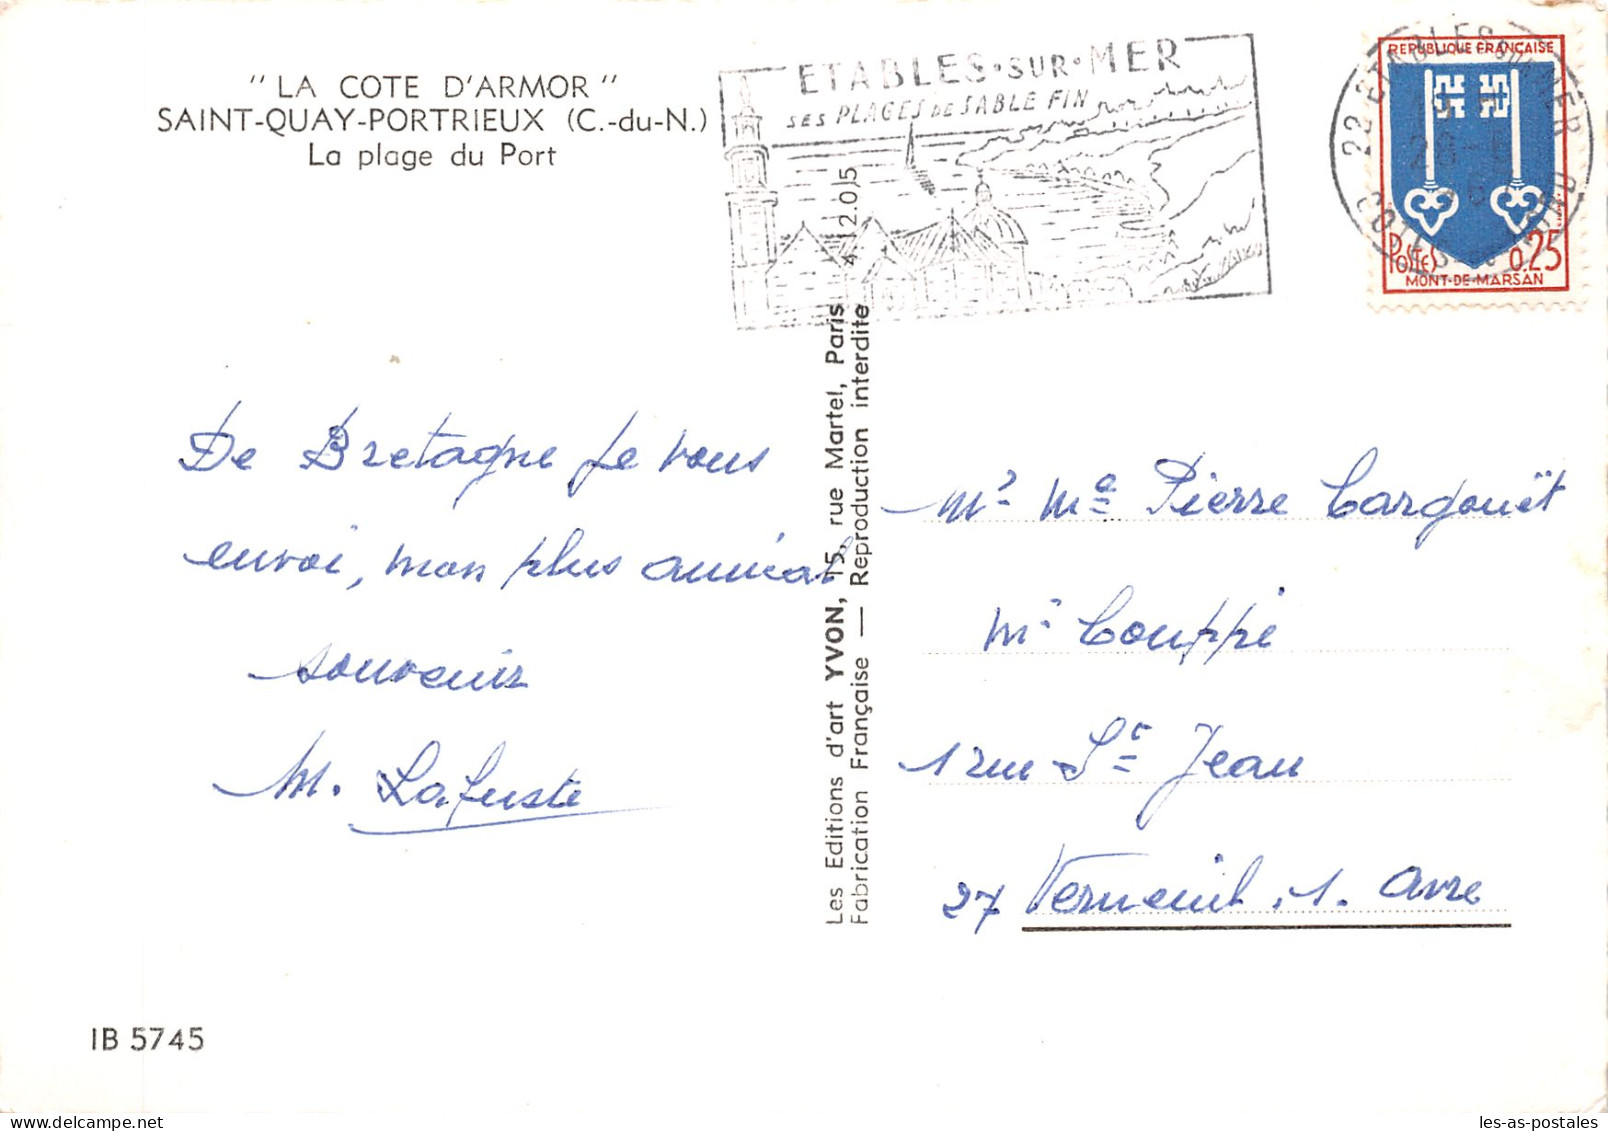 " LA COTE D'ARMOR "
SAINT-QUAY-PORTRIEUX (C.-du-N.)
La plage du Port
ETABLES·SUR·MER
SES PLAGES DE SABLE FIN
22 ETABLES SUR MER
REPUBLIQUE FRANÇAISE
POSTES 0,25
MONT-DE-MARSAN
De Bretagne je vous
envoi, mon plus amical
souvenir
M. Lafuste
Les Editions d'art YVON, 15, rue Martel, Paris 4.12.0)5
Fabrication Française — Reproduction interdite
Mr Me Pierre Cargouët
Mr Couppé
1 rue St Jean
27 Verneuil s. Avre
IB 5745
les-as-postales